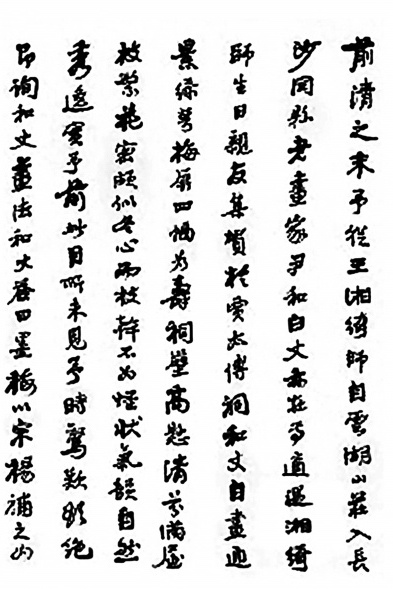 前清之末予從王湘綺師自雲湖山莊入長
沙同縣老畫家尹和白丈亦在焉適遇湘綺
師生日親友集賀於賈太傅祠和丈自畫迎
景綠萼梅四幅为壽祠壁高懸清芬满座
枝繁花密頗似冬心而枝幹不为怪狀氣韻自然
秀逸實予前此目所未見予時驚歎欲絕
即詢和丈畫法和丈答曰墨梅以宋楊補之为